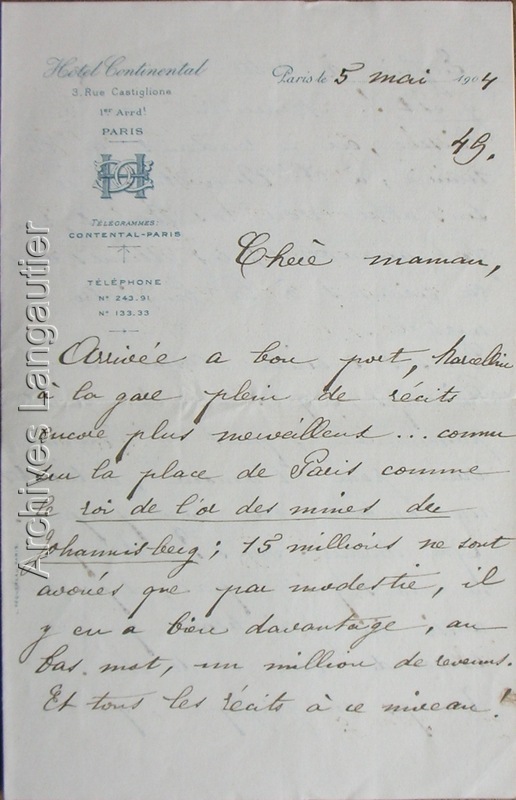 Hôtel Continental
3, Rue Castiglione
1er Arrdt
PARIS
TÉLÉGRAMMES:
CONTENTAL-PARIS
TÉLÉPHONE
No 243.91
No 133.33
Paris le 5 mai 1904
49.
Chère maman,
Arrivée a bon port, Marcellin
à la gare plein de récits
encore plus merveilleux ... connu
sur la place de Paris comme
le roi de l'or des mines de
Johannisberg ; 15 millions ne sont
avoués que par modestie, il
y en a bien davantage, au
bas mot, un million de revenus.
Et tous les récits à ce niveau !
Archives Langautier